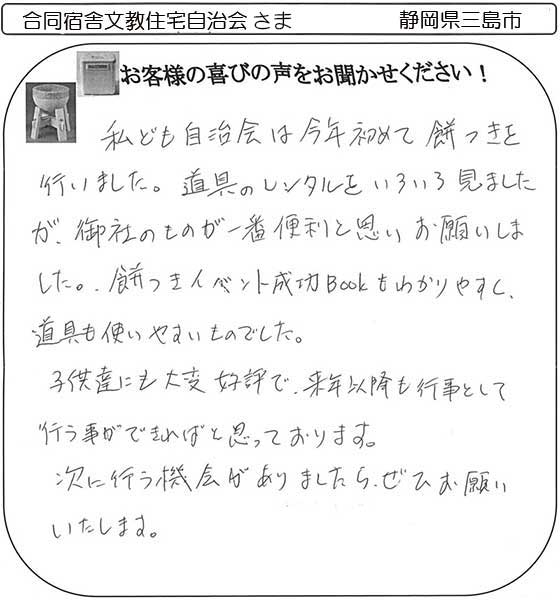 合同宿舎文教住宅自治会さま 静岡県三島市
お客様の喜びの声をお聞かせください！
私ども自治会は今年初めて餅つきを
行いました。道具のレンタルをいろいろ見ました
が、御社のものが一番便利と思いお願いしま
した。餅つきイベント成功Bookもわかりやすく、
道具も使いやすいものでした。
子供達にも大変好評で、来年以降も行事として
行う事ができればと思っております。
次に行う機会がありましたら、ぜひお願い
いたします。